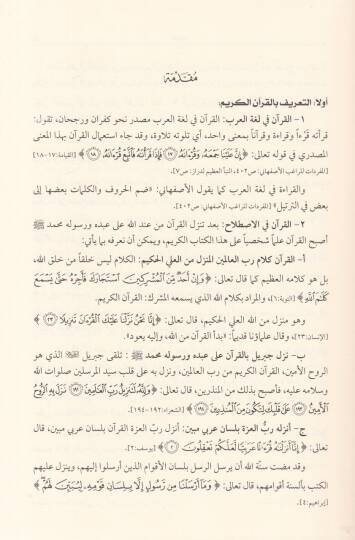 مقدمة
أولا: التعريف بالقرآن الكريم:
١- القرآن في لغة العرب: القرآن في لغة العرب مصدر نحو كفران ورجحان، تقول:
قرأته قرءاً وقراءة وقرآناً بمعنى واحد، أي تلوته تلاوة، وقد جاء استعمال القرآن بهذا المعنى
المصدري في قوله تعالى: ﴿إِنَّ عَلَيْنَا جَمْعَهُ وَقُرْءَانَهُ ﴿١٧﴾ فَإِذَا قَرَأْنَاهُ فَاتَّبِعْ قُرْءَانَهُ ﴿١٨﴾﴾ [القيامة:١٧-١٨]
[المفردات للراغب الأصفهاني: ص٤٠٢، النبأ العظيم لدراز: ص٧].
والقراءة في لغة العرب كما يقول الأصفهاني: «ضم الحروف والكلمات بعضها إلى
بعض في الترتيل» [المفردات للراغب الأصفهاني: ص٤٠٢].
٢- القرآن في الاصطلاح: بعد تنزل القرآن من عند الله على عبده ورسوله محمد ﷺ
أصبح القرآن علماً شخصياً على هذا الكتاب الكريم، ويمكن أن نعرفه بما يأتي:
أ- القرآن كلام رب العالمين المنزل من العلي الحكيم: الكلام ليس خلقاً من خلق الله،
بل هو كلامه العظيم كما قال تعالى: ﴿وَإِنْ أَحَدٌ مِّنَ الْمُشْرِكِينَ اسْتَجَارَكَ فَأَجِرْهُ حَتَّى يَسْمَعَ
كَلَامَ اللَّهِ﴾ [التوبة:٦]، والمراد بكلام الله الذي يسمعه المشرك: القرآن الكريم.
وهو منزل من الله العلي الحكيم، قال تعالى: ﴿إِنَّا نَحْنُ نَزَّلْنَا عَلَيْكَ الْقُرْءَانَ تَنزِيلًا ﴿٢٣﴾﴾
[الإنسان:٢٣]، وقال علماؤنا قديماً: «بدأ القرآن من الله، وإليه يعود».
ب- نزل جبريل بالقرآن على عبده ورسوله محمد ﷺ: تلقى جبريل الذي هو
الروح الأمين، القرآن الكريم من رب العالمين، ونزل به على قلب سيد المرسلين صلوات الله
وسلامه عليه، فأصبح بذلك من المنذرين، قال تعالى: ﴿وَإِنَّهُ لَتَنزِيلُ رَبِّ الْعَالَمِينَ ﴿١٩٢﴾ نَزَلَ بِهِ الرُّوحُ
الْأَمِينُ ﴿١٩٣﴾ عَلَى قَلْبِكَ لِتَكُونَ مِنَ الْمُنذِرِينَ ﴿١٩٤﴾﴾ [الشعراء:١٩٢-١٩٤].
ج- أنزله ربُّ العزة بلسان عربي مبين: أنزل ربُّ العزة القرآن بلسان عربي مبين، قال
تعالى: ﴿إِنَّا أَنزَلْنَاهُ قُرْءَانًا عَرَبِيًّا لَّعَلَّكُمْ تَعْقِلُونَ ﴿٢﴾﴾ [يوسف:٢].
وقد مضت سنّة الله أن يرسل الرسل بلسان الأقوام الذين أرسلوا إليهم، وينزل عليهم
الكتب بألسنة أقوامهم، قال تعالى: ﴿وَمَا أَرْسَلْنَا مِن رَّسُولٍ إِلَّا بِلِسَانِ قَوْمِهِ لِيُبَيِّنَ لَهُمْ﴾
[إبراهيم:٤].